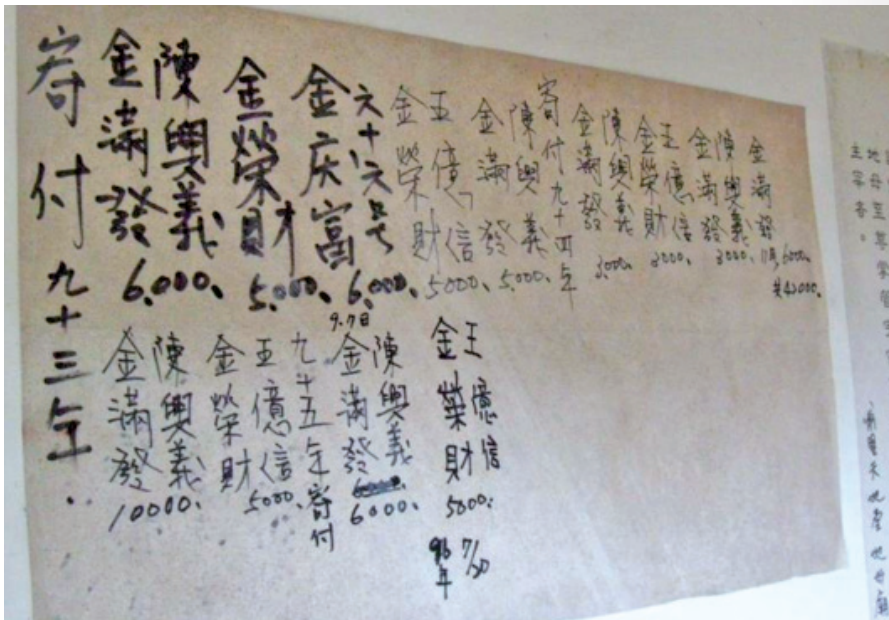 寄付九十三年.
金滿發
陳興義
6,000.
金榮財
5,000.
金庆富
六十六号
6,000.
9.7日
金榮財
王億信
5000.
金滿發
陳興義
5,000.
寄付九十四年
金滿發
陳興義
3,000.
金榮財
王億信
3000.
金滿發
陳興義
3000.
金滿發
6000.
共42000.
金滿發
陳興義
10000.
金榮財
王億信
5000.
九十五年寄付
金滿發
陳興義
6000.
金榮財
王億信
5000.
96年
7/20
地母至尊
主宰者。